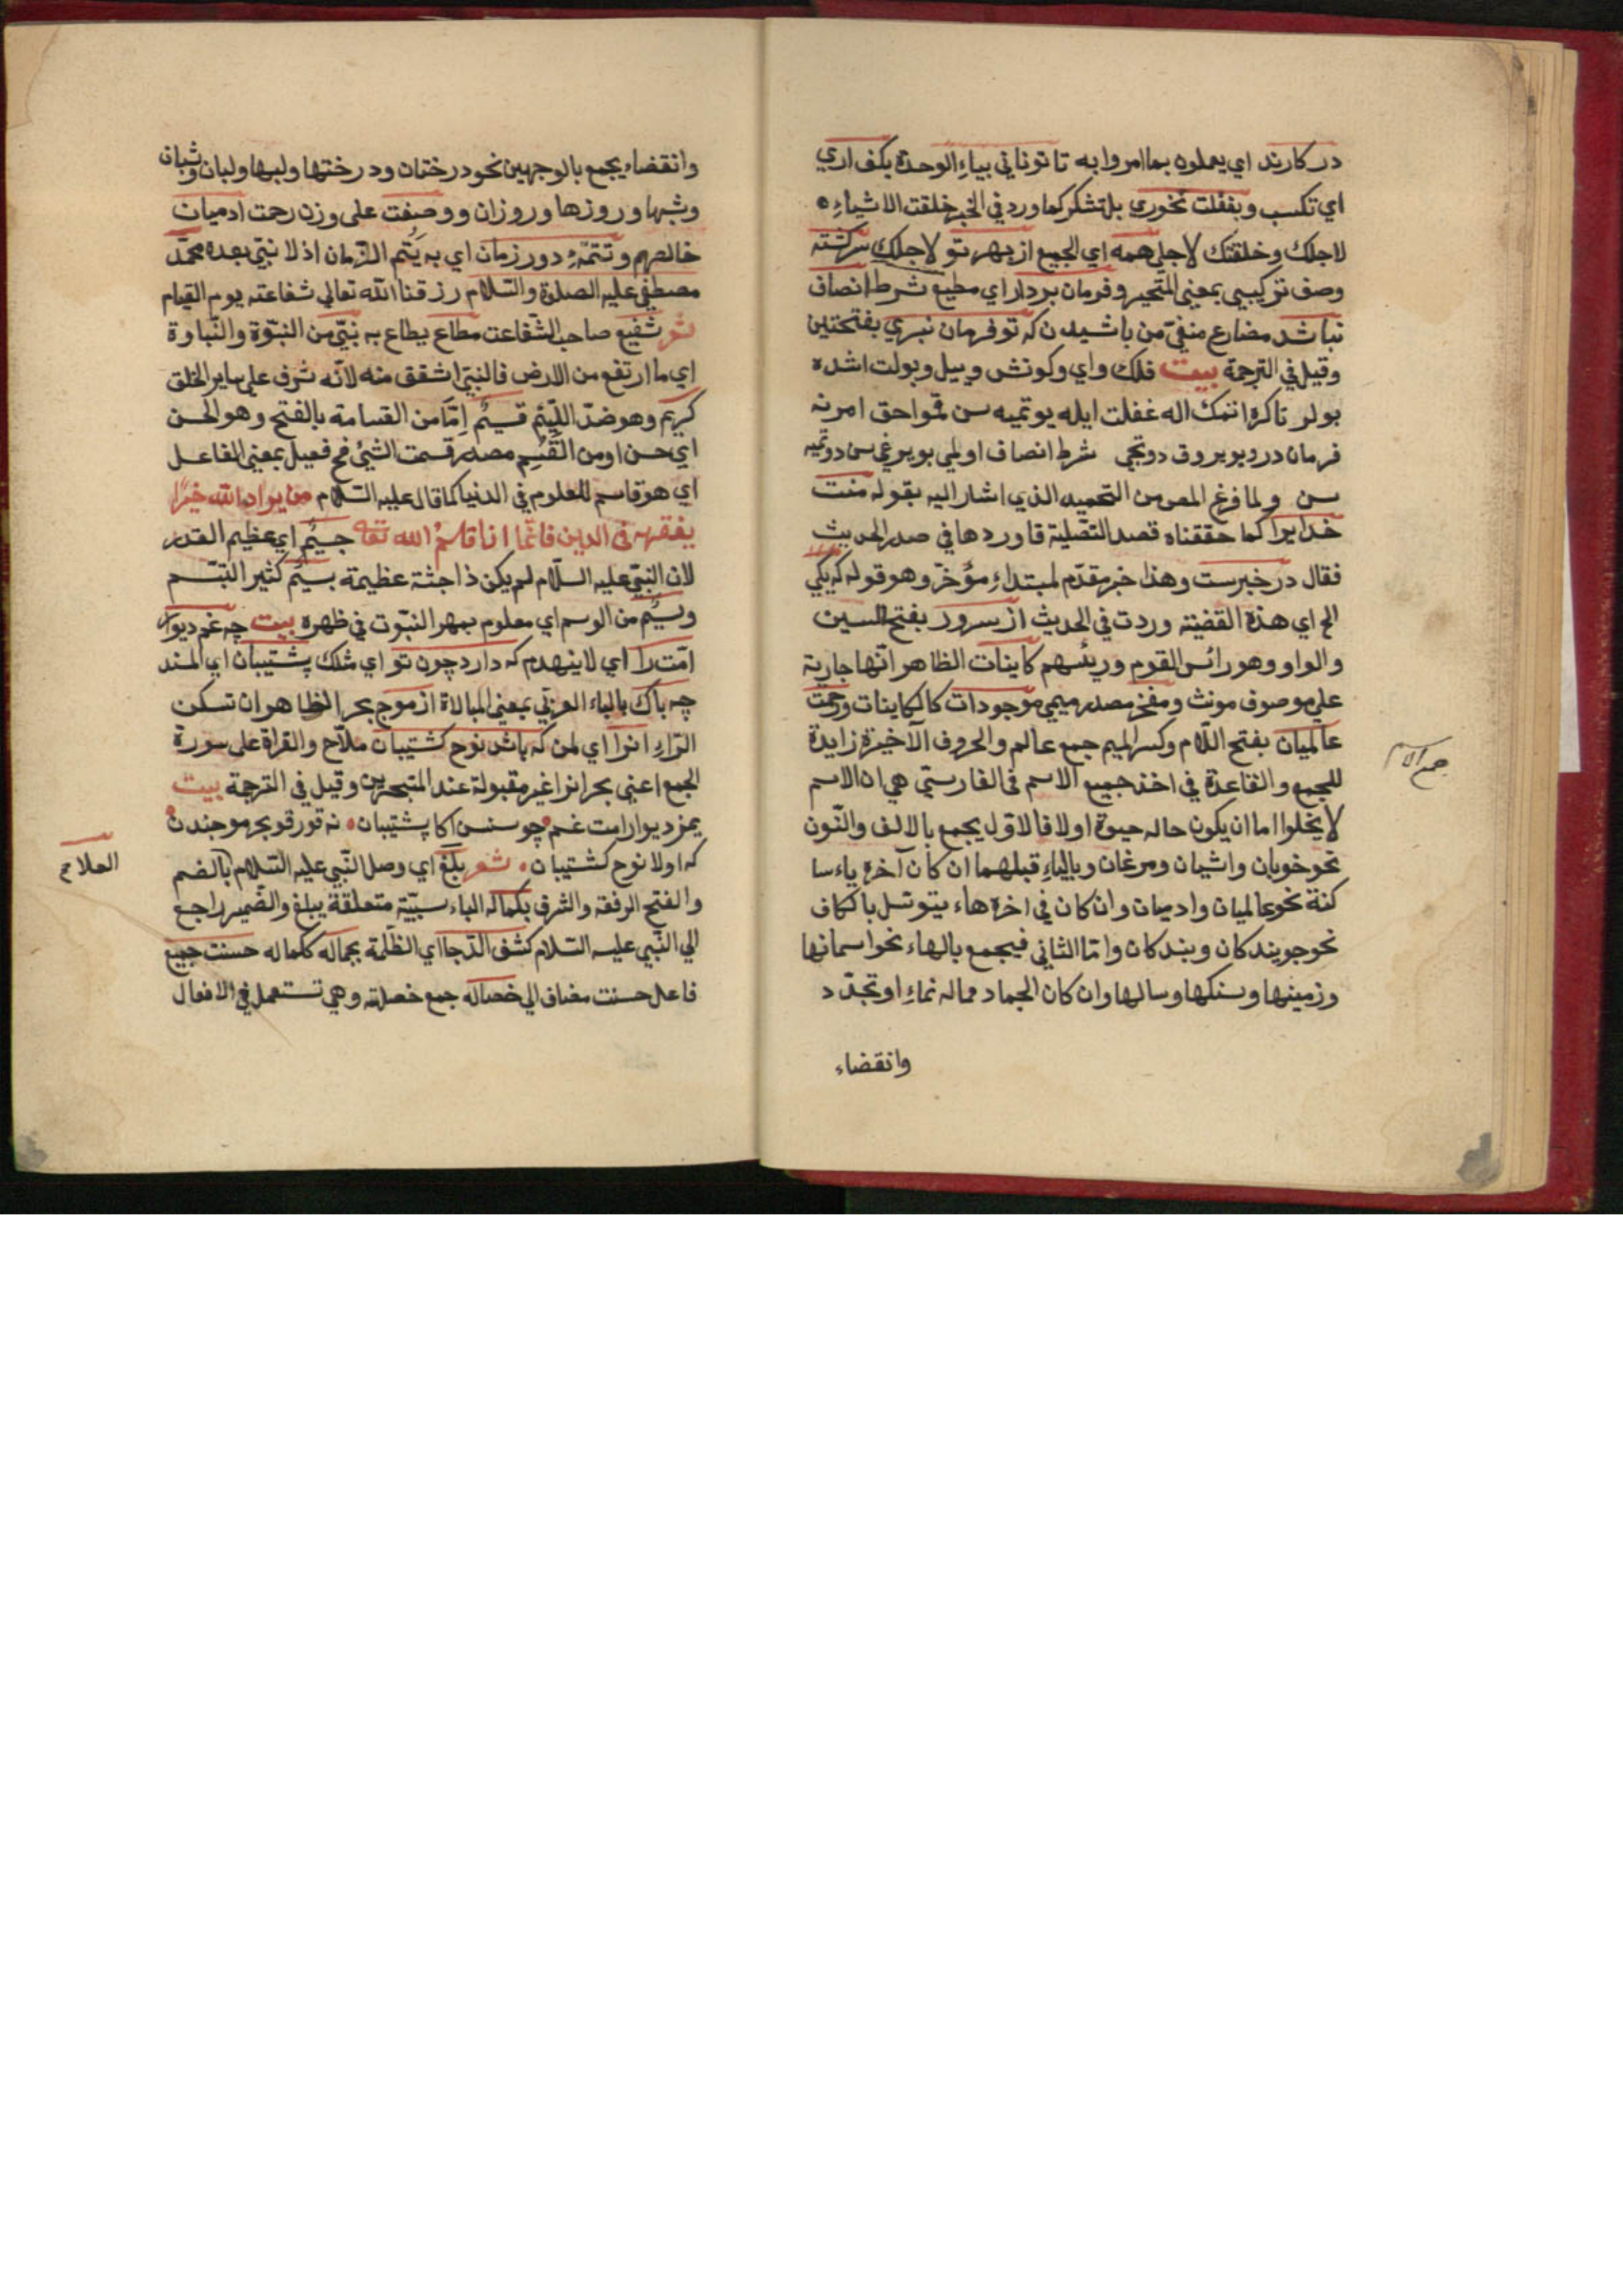 در كارند اي يعملون بما امروا به تا تو ناني بياء الوحدة بكف اري
اي تكسب وبغفلت نخوري بل تشكر كما ورد في الخبر خلقت الاشياء
لاجلك وخلقتك لاجلي همه اي الجميع از بهر تو لاجلك سركشته
وصف تركيبي بمعني المتحير وفرمان بردار اي مطيع شرط انصاف
نباشد مضارع منفي من باشيدن كه تو فرمان نبري بفتحتين
وقيل في الترجمة بيت فلك واي وكونش وييل وبولت اشده
بولر تاكره اتمك اله غفلت ايله يوتميه سن قمو احق امرنه
فرمان در وبويروق دوتجي شرط انصاف اولمي بويرغي سن دوتميه
سن ولما فرغ المص من التحميد الذي اشار اليه بقوله منت
خدايرا كما حققناه قصد التصلية فاوردها في صدر الحديث
فقال در خبرست وهذا خبر مقدم لمبتداء مؤخر وهو قوله كه يكي
الخ اي هذه القضية وردت في الحديث از سرور بفتح السين
والواو وهو رائس القوم ورئسهم كاينات الظاهر انها جارية
علي موصوف مونث ومفخر مصدر ميمي موجودات كالكاينات ورحمت
عالميان بفتح اللام وكسر الميم جمع عالم والحروف الاخيرة زايدة
للجمع والقاعدة في اخذ جميع الاسم في الفارسي هي ان الاسم
لا يخلوا اما ان يكون حاله حيوة اولا فالاول يجمع بالالف والنون
نحو خوبان واشيان ومرغان وبالياء قبلهما ان كان آخره ياء سا
كنة نحو عالميان وادميان وان كان في اخره هاء يتوسل بالكاف
نحو جويندكان وبندكان واما الثاني فيجمع بالهاء نحو اسمانها
وزمينها وسنكها وسالها وان كان الجماد مماله نماء او تجدد
وانقضاء
جمع الاسم
وانقضاء يجمع بالوجهين نحو درختان ودرختها ولبها ولبان وشبان
وشبها وروزها وروزان ووصفت علي وزن رحمت ادميان
خالصهم وتتمه دور زمان اي به يتم الزمان اذ لا نبي بعده محمد
مصطفي عليه الصلوة والسلام رزقنا الله تعالي شفاعته يوم القيام
شعر شفيع صاحب الشفاعت مطاع يطاع به نبي من النبوة والنباوة
اي ما ارتفع من الارض فالنبي اشقق منه لانه شرف علي ساير الخلق
كريم وهو ضد اللئيم قسيم اما من القسامة بالفتح وهو الحسن
اي حسن او من القسم مصدر قسمت الشئ فح فعيل بمعني الفاعل
اي هو قاسم للعلوم في الدنيا كما قال عليه السلام من يراد الله خيرا
يفقهه في الدين فانما انا قاسم الله تعا جسيم اي عظيم القدر
لان النبي عليه السلام لم يكن ذا جثة عظيمة بسيم كثير التبسم
وسيم من الوسم اي معلوم بمهر النبوت في ظهره بيت چه غم ديوار
امت را اي لا ينهدم كه دارد چون تو اي مثلك پشتيبان اي المسند
چه باك بالباء العربي بمعني المبالاة از موج بحر الظاهر ان تسكن
الراء انرا اي لمن كه باشد نوح كشتيبان ملاح والقراة علي سورة
الجمع اعني بحر انرا غير مقبولة عند المتبحرين وقيل في الترجمة بيت
يمز ديوار امت غم چو سنسن اكا پشتيبان نه قورقو بحر موجندن
كه اولا نوح كشتيبان شعر بلغ اي وصل النبي عليه السلام بالضم
والفتح الرفقة والشرف بكماله الباء سببية متعلقة يبلغ والضمير راجع
الي النبي عليه السلام كشف الدجا اي الظلمة بجماله ككماله حسنت جميع
فاعل حسنت مضاف الي خصاله جمع خصلته وهي تستعمل في الافعال
الملاح